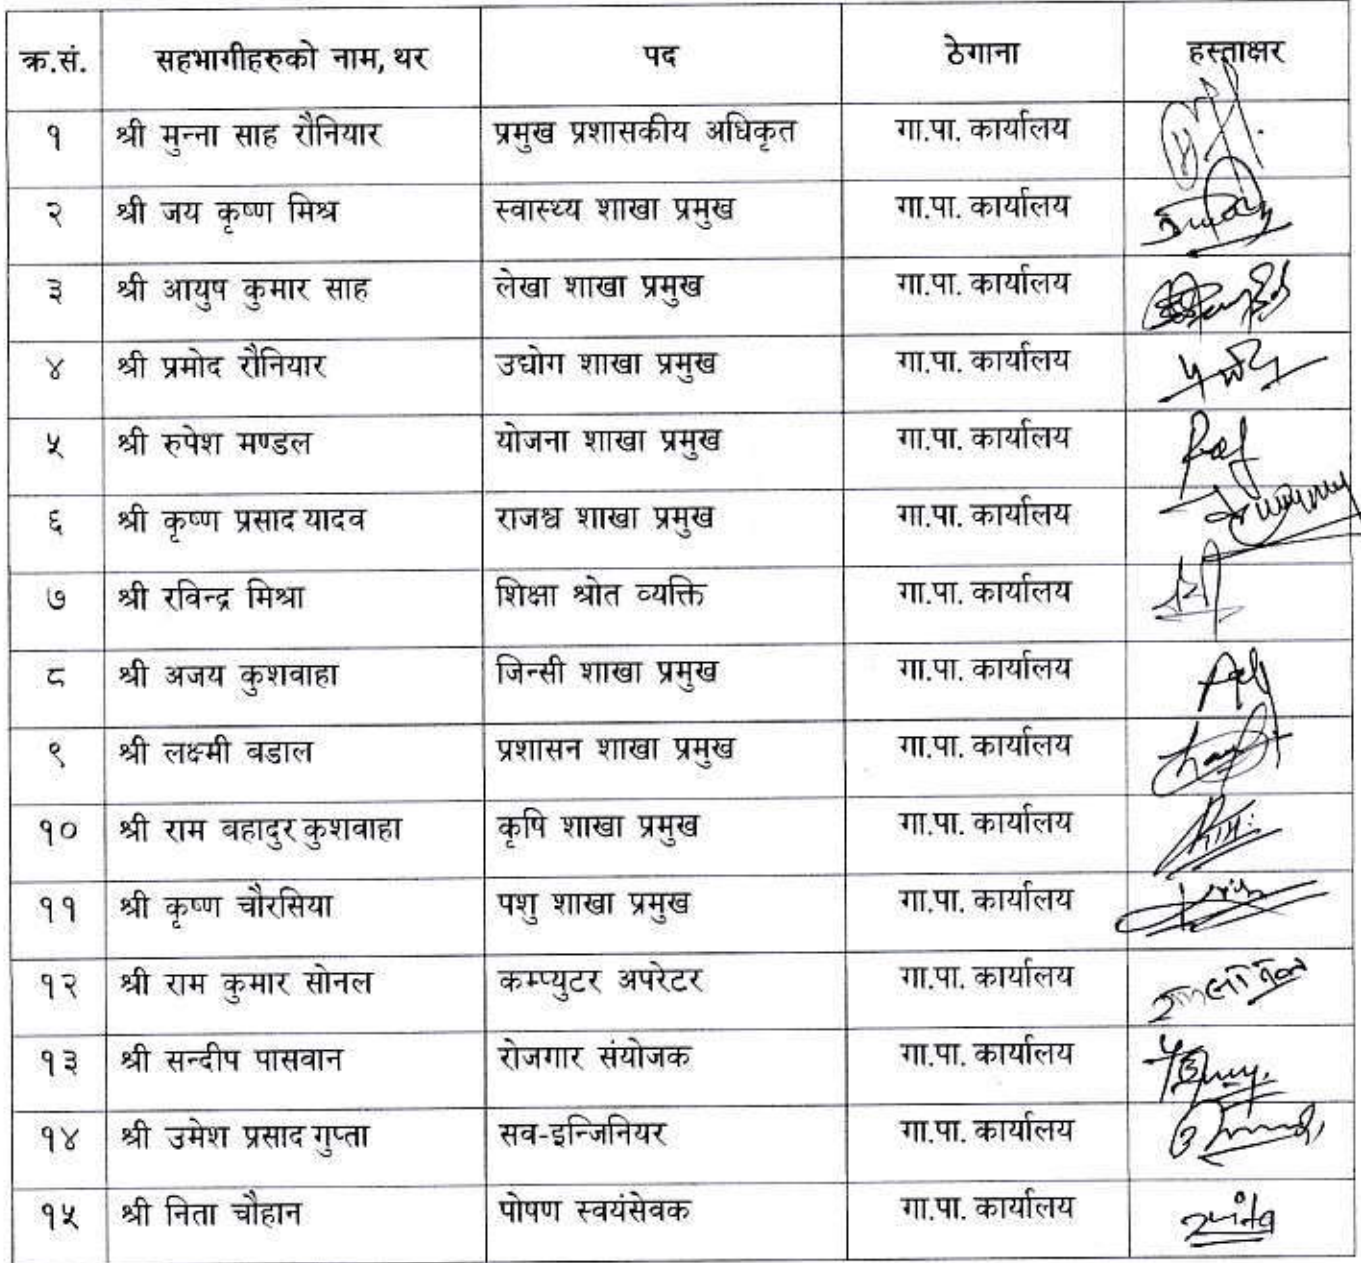 क्र.सं. सहभागीहरुको नाम, थर पद ठेगाना हस्ताक्षर
१ श्री मुन्ना साह रौनियार प्रमुख प्रशासकीय अधिकृत गा.पा. कार्यालय
२ श्री जय कृष्ण मिश्र स्वास्थ्य शाखा प्रमुख गा.पा. कार्यालय
३ श्री आयुष कुमार साह लेखा शाखा प्रमुख गा.पा. कार्यालय
४ श्री प्रमोद रौनियार उद्योग शाखा प्रमुख गा.पा. कार्यालय
५ श्री रुपेश मण्डल योजना शाखा प्रमुख गा.पा. कार्यालय
६ श्री कृष्ण प्रसाद यादव राजश्व शाखा प्रमुख गा.पा. कार्यालय
७ श्री रविन्द्र मिश्रा शिक्षा श्रोत व्यक्ति गा.पा. कार्यालय
८ श्री अजय कुशवाहा जिन्सी शाखा प्रमुख गा.पा. कार्यालय
९ श्री लक्ष्मी बडाल प्रशासन शाखा प्रमुख गा.पा. कार्यालय
१० श्री राम बहादुर कुशवाहा कृषि शाखा प्रमुख गा.पा. कार्यालय
११ श्री कृष्ण चौरसिया पशु शाखा प्रमुख गा.पा. कार्यालय
१२ श्री राम कुमार सोनल कम्प्युटर अपरेटर गा.पा. कार्यालय
१३ श्री सन्दीप पासवान रोजगार संयोजक गा.पा. कार्यालय
१४ श्री उमेश प्रसाद गुप्ता सव-इन्जिनियर गा.पा. कार्यालय
१५ श्री निता चौहान पोषण स्वयंसेवक गा.पा. कार्यालय